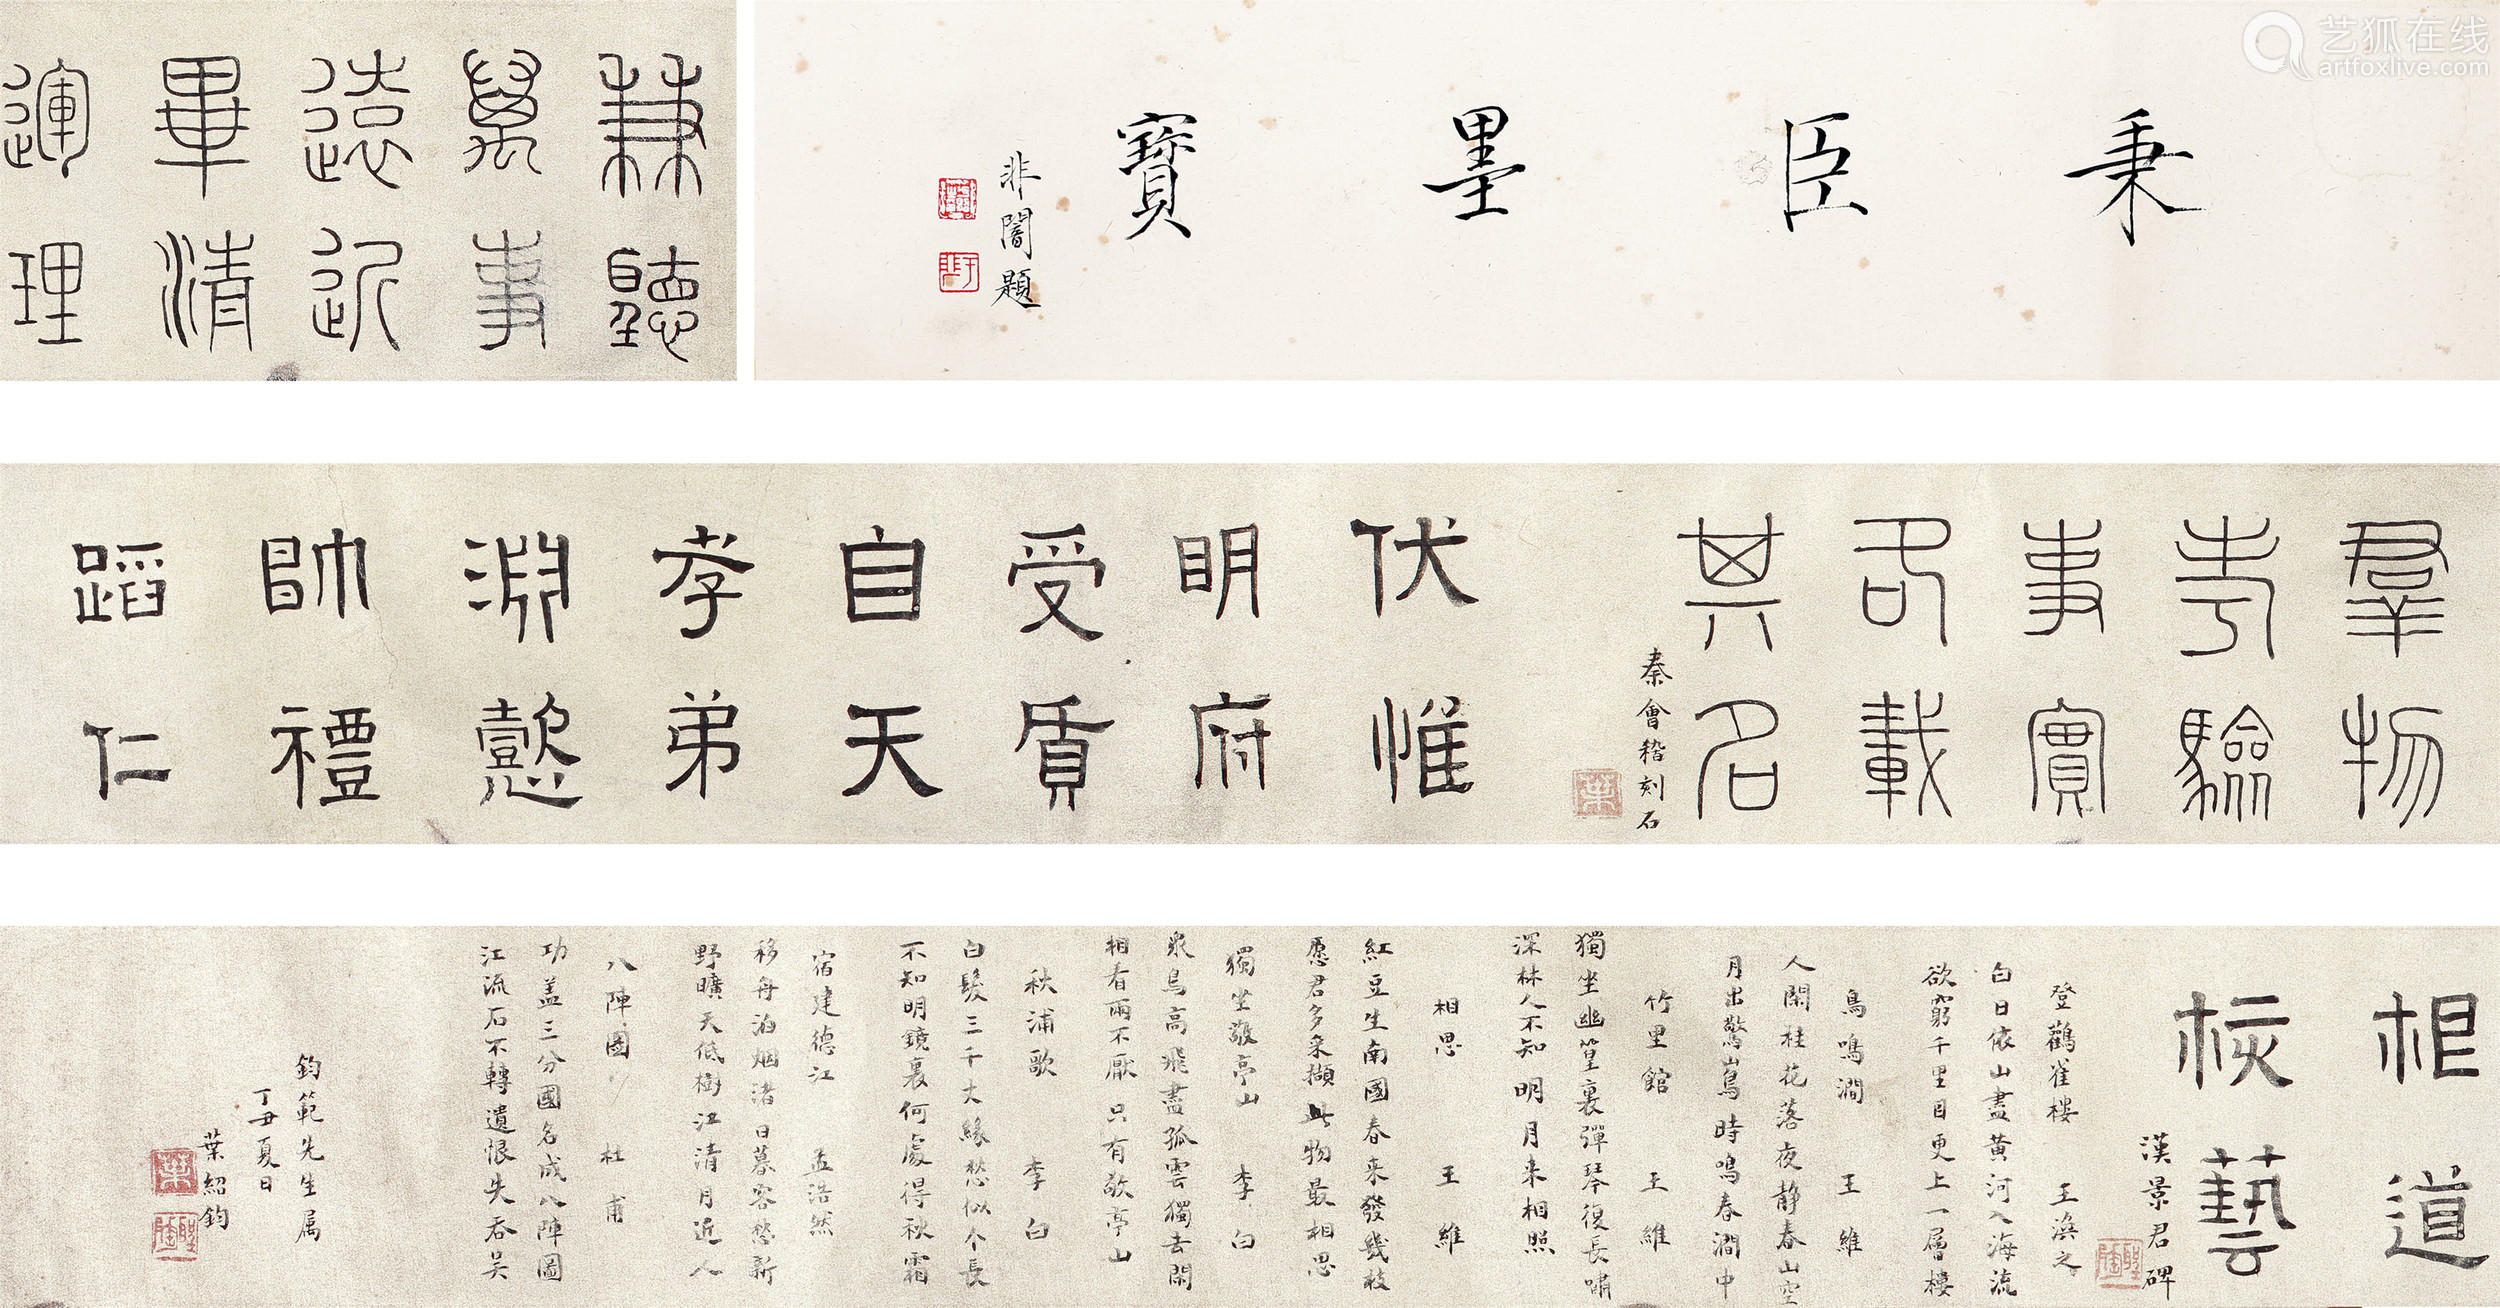 艺狐在线
artfoxlive.com
秉臣墨寶
非闇題
于非
兼聽
萬事
遠近
畢清
運理
羣物
考驗
事實
各載
其名
秦會稽刻石
葉
伏惟
明府
受質
自天
孝弟
淵懿
帥禮
蹈仁
根道
核藝
漢景君碑
聖陶
登鸛雀樓 王渙之
白日依山盡黄河入海流
欲窮千里目更上一層樓
鳥鳴澗 王維
人閑桂花落夜静春山空
月出驚山鳥時鳴春澗中
竹里館 王維
獨坐幽篁裏彈琴復長嘯
深林人不知明月来相照
相思 王維
紅豆生南國春来發幾枝
愿君多采擷此物最相思
獨坐敬亭山 李白
衆鳥高飛盡孤雲獨去閑
相看兩不厭只有敬亭山
秋浦歌 李白
白髮三千丈緣愁似个長
不知明鏡裏何處得秋霜
宿建德江 孟浩然
移舟泊烟渚日暮客愁新
野曠天低樹江清月近人
八陣圖 杜甫
功盖三分國名成八陣圖
江流石不轉遺恨失吞吴
鈞範先生属
丁丑夏日
葉紹鈞
葉
聖陶